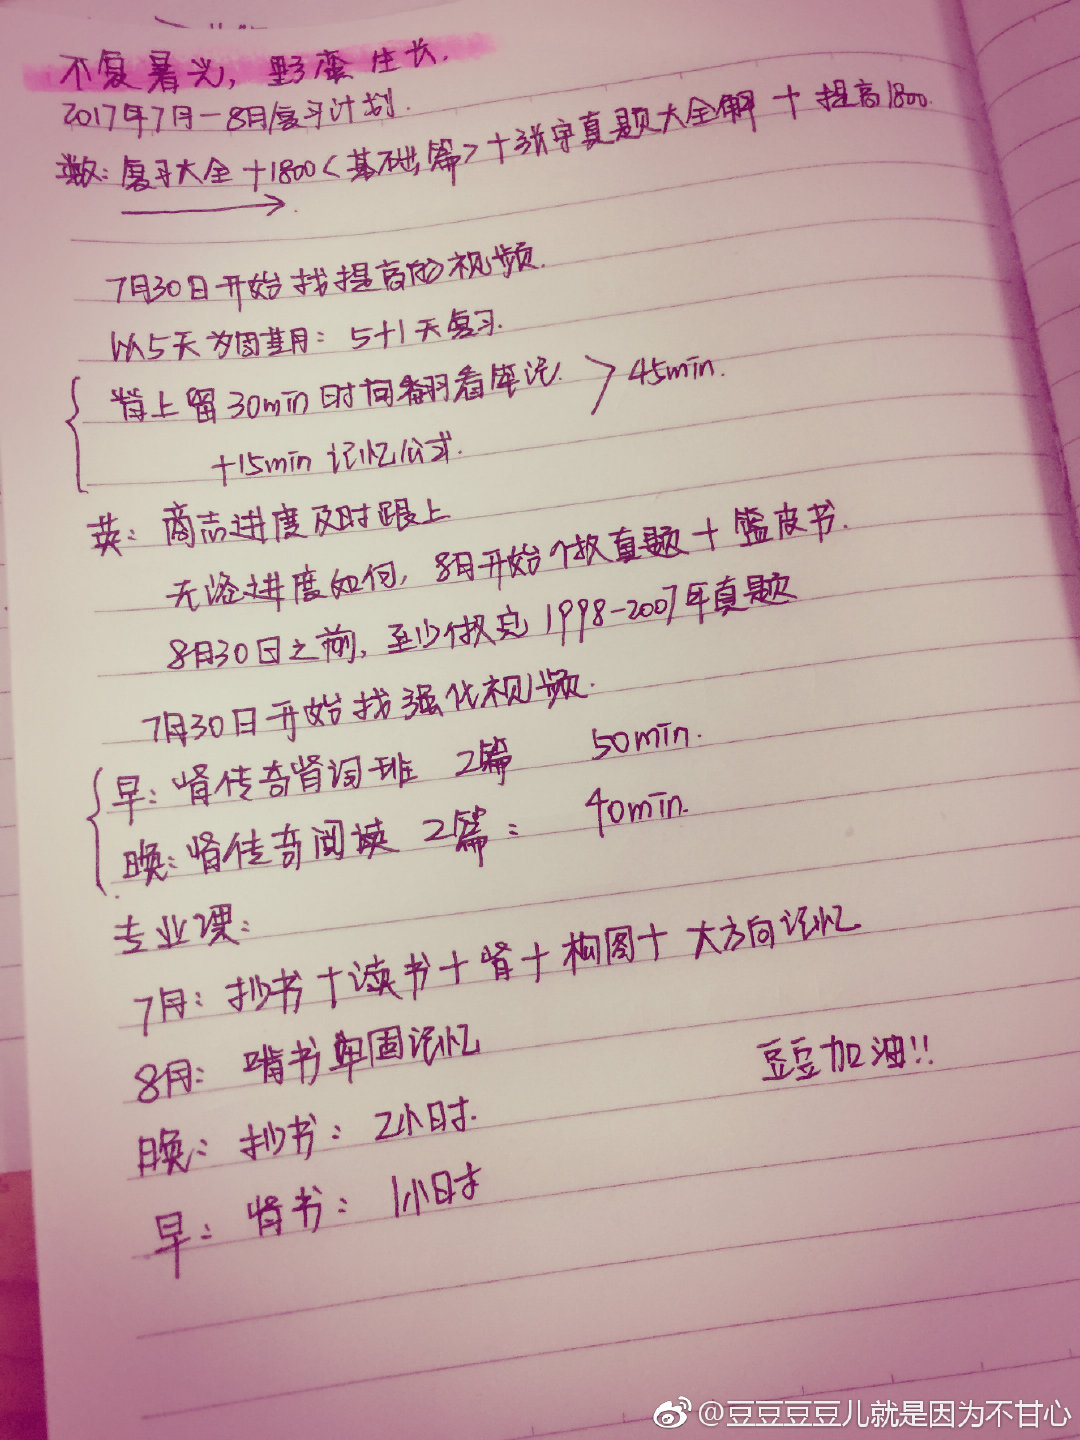 不复暑光，野蛮生长.
2017年7月-8月复习计划.
数：复习大全+1800<基础篇>+张宇真题大全解+提高1800.
7月30日开始找提高的视频.
以5天为周期：5+1天复习.
背上留30min时间翻看笔记. > 45min.
+15min 记忆公式.
英：商志进度及时跟上
无论进度如何, 8月开始做真题+蓝皮书.
8月30日之前, 至少做完1998-2007年真题
7月30日开始找强化视频.
早：背传奇背词班 2篇 50min.
晚：背传奇阅读 2篇： 40min.
专业课：
7月：抄书+读书+背+构图+大方向记忆
8月：啃书牢固记忆
豆豆加油!!
晚：抄书：2小时.
早：背书：1小时
@豆豆豆豆儿就是因为不甘心